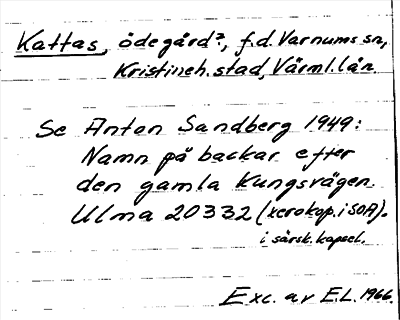 Kattas, ödegård?, f.d. Varnums sn,
Kristineh. stad, Värml. län.
Se Anton Sandberg 1949:
Namn på backar efter
den gamla Kungsvägen.
Ulma 20332 (xerokop. i SOA).
i särsk. kapsel.
Exc. av E.L. 1966.